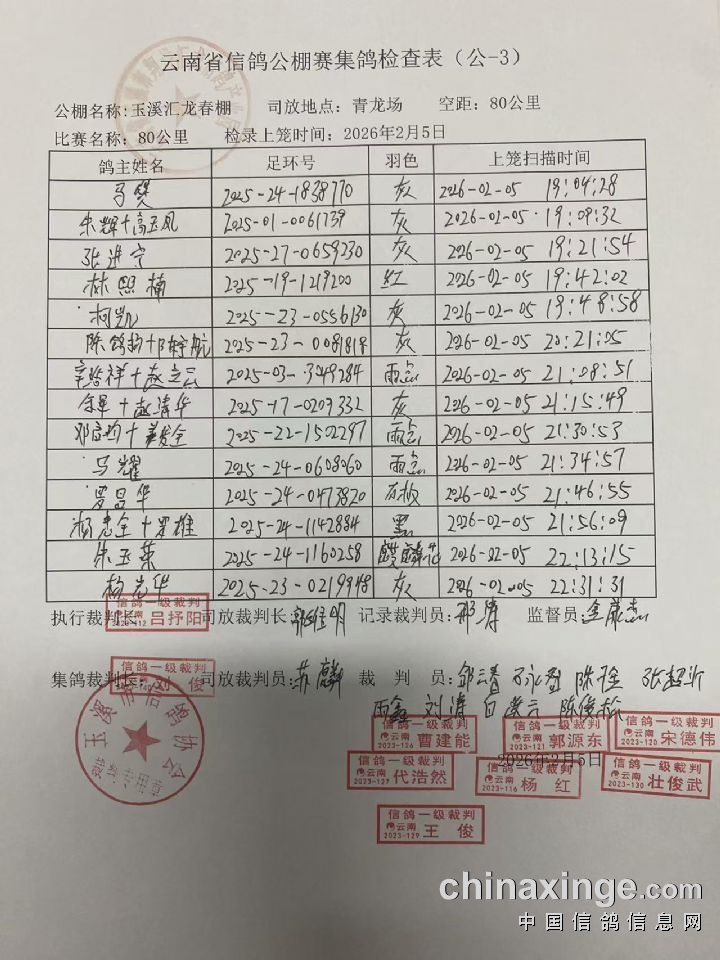 云南省信鸽公棚赛集鸽检查表（公-3）
公棚名称:玉溪汇龙春棚 司放地点：青龙场 空距：80公里
比赛名称：80公里 检录上笼时间：2026年2月5日
鸽主姓名 足环号 羽色 上笼扫描时间
马樊 2025-24-1838770 灰 2026-02-05 19:04:28
朱辉+高玉凤 2025-01-0061739 灰 2026-02-05 19:09:32
张进宁 2025-27-0659230 灰 2026-02-05 19:21:54
林熙楠 2025-19-1219200 红 2026-02-05 19:42:02
柯凯 2025-23-0556130 灰 2026-02-05 19:48:58
2025-23-0081818 灰 2026-02-05 20:21:05
2025-03-349284 雨点 2026-02-05 21:08:51
2025-17-0209332 灰 2026-02-05 21:15:49
2025-22-1502297 雨点 2026-02-05 21:30:53
马耀 2025-24-0608060 雨点 2026-02-05 21:34:57
罗昌华 2025-24-0473820 石板 2026-02-05 21:46:55
杨志全+罗雄 2025-24-1142884 黑 2026-02-05 21:56:09
朱玉荣 2025-24-1160258 麒麟花 2026-02-05 22:13:15
杨光华 2025-23-0219948 灰 2026-02-05 22:31:31
执行裁判长： 司放裁判长： 记录裁判员： 监督员：
信鸽一级裁判
吕抒阳
集鸽裁判长： 司放裁判员：苏麟 裁 判 员：
信鸽一级裁判
刘 俊
刘涛
玉溪市信鸽协会
裁判专用章
信鸽一级裁判 信鸽一级裁判 信鸽一级裁判
云南 曹建能 云南 郭源东 云南 宋德伟
2023-126 2023-121 2023-120
2026年2月5日
信鸽一级裁判 信鸽一级裁判 信鸽一级裁判
云南 代浩然 云南 杨 红 云南 壮俊武
2023-127 2023-116 2023-130
信鸽一级裁判
云南 王 俊
2023-129
chinaxinge.com
中国信鸽信息网